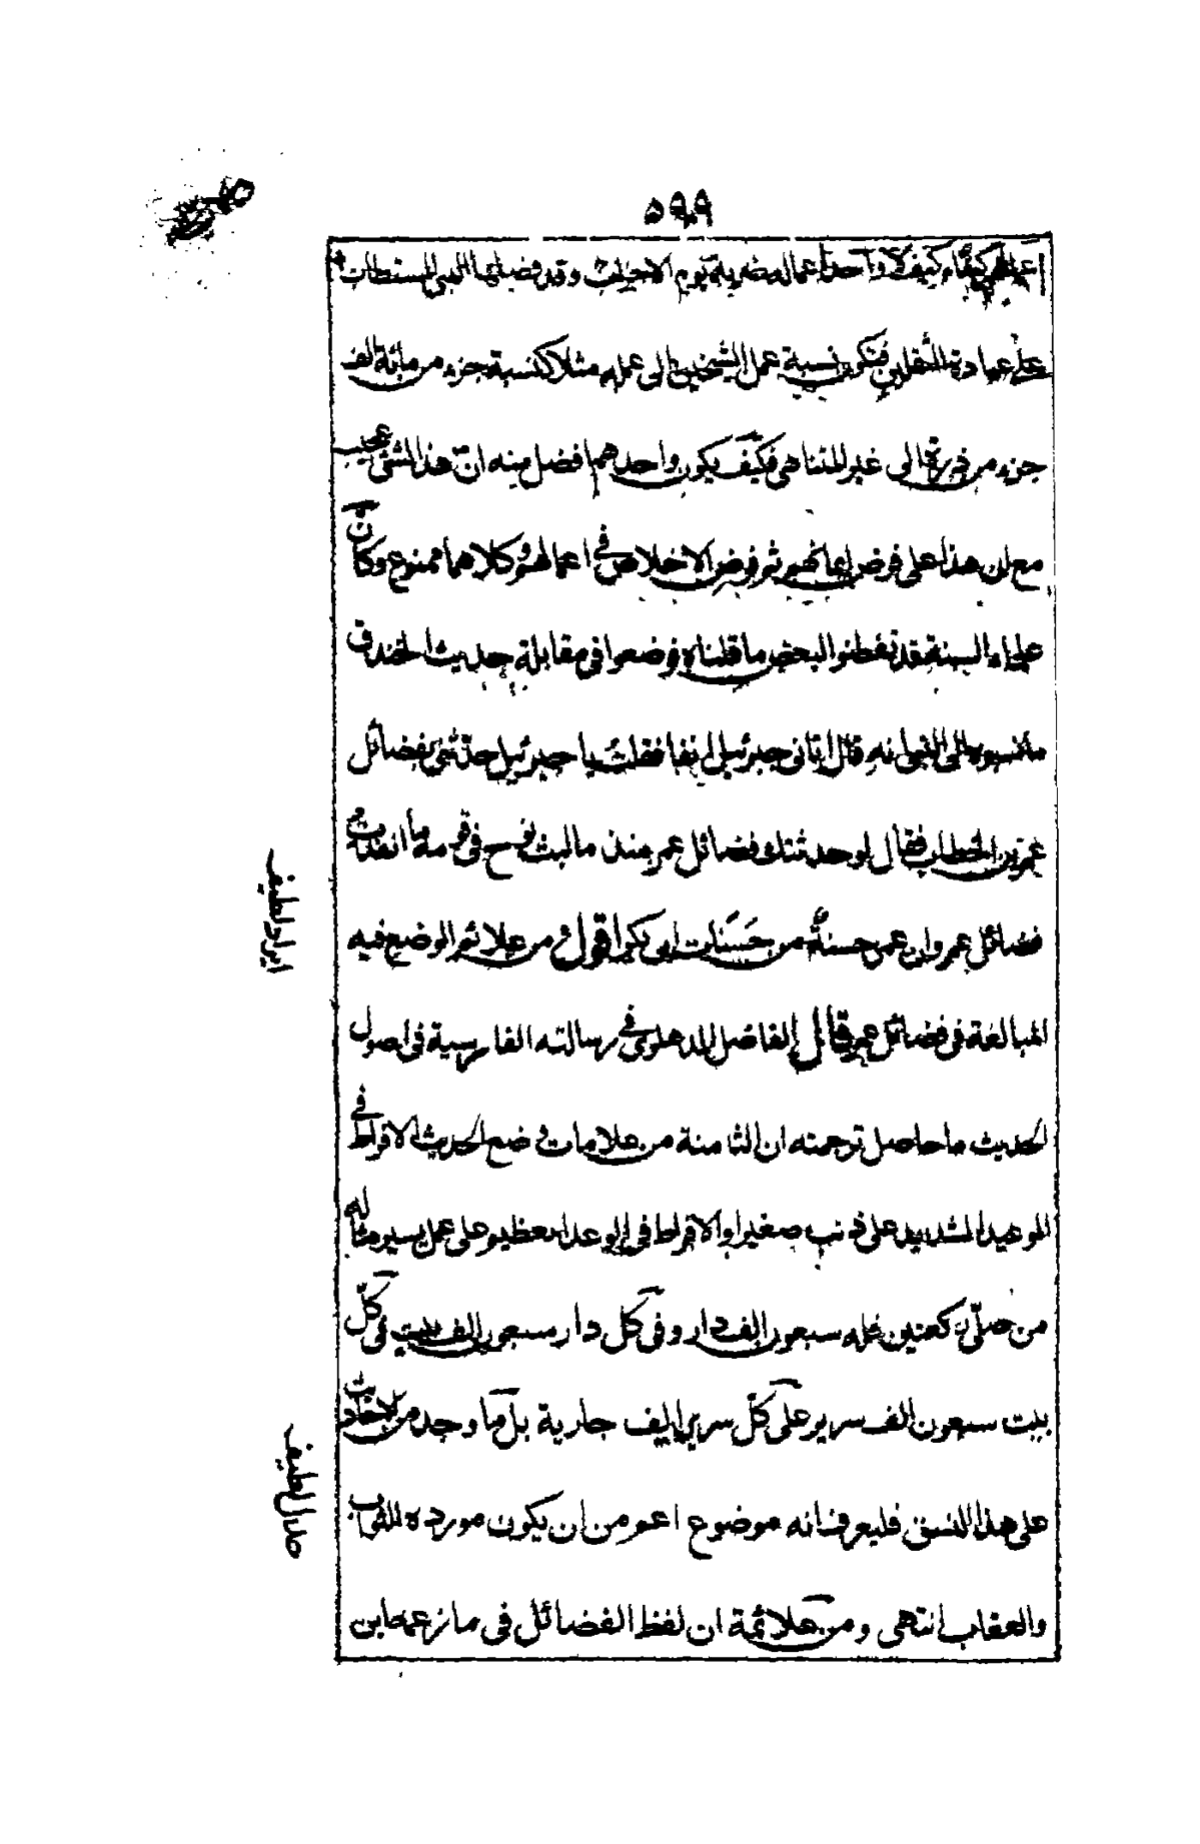 ٥٩٩
اعمالهم كيف لا واحد اعماله ضربة يوم الاحزاب وقد فضلها النبي
على عبادة الثقلين فتكون نسبة عمل الشيخين الى عمله مثلا كنسبة جزء من مائة الف
جزء من الى غير المتناهى فكيف يكون واحدهما افضل منه ان هذا لشئ عجيب
مع ان هذا على فرض ايمانهم ثم فرض الاخلاص فى اعمالهم وكلاهما ممنوع وكان
علماء السنة قد تفطنوا لبعض ما قلناه فوضعوا فى مقابلة حديث الخندق
ما نسبوه الى النبى انه قال اتانى جبرئيل انفا فقلت يا جبرئيل حدثنى بفضائل
عمر بن الخطاب فقال لو حدثتك فضائل عمر منذ ما لبث نوح فى قومه ما انفدت
فضائل عمر وان عمر حسنة من حَسَنات ابى بكر اقول من علائم الوضع فيه
المبالغة فى فضائل عمر قال الفاضل الدهلوى فى رسالته الفارسية فى اصول
الحديث ما حاصل ترجمته ان الثامنة من علامات وضع الحديث الافراط فى
الوعيد الشديد على ذنب صغير او الافراط فى الوعد العظيم على عمل يسير مثاله
من صلّى ركعتين فله سبعون الف دار وفى كل دار سبعون الف بيت فى كلّ
بيت سبعون الف سرير على كلّ سرير الف جارية بل ما وجد من الاحاديث
على هذا النسق فليعرف انه موضوع اعم من ان يكون مورده الثواب
والعقاب انتهى ومن علائمة ان لفظ الفضائل فى ما زعمه ابن
ايراد لطيف